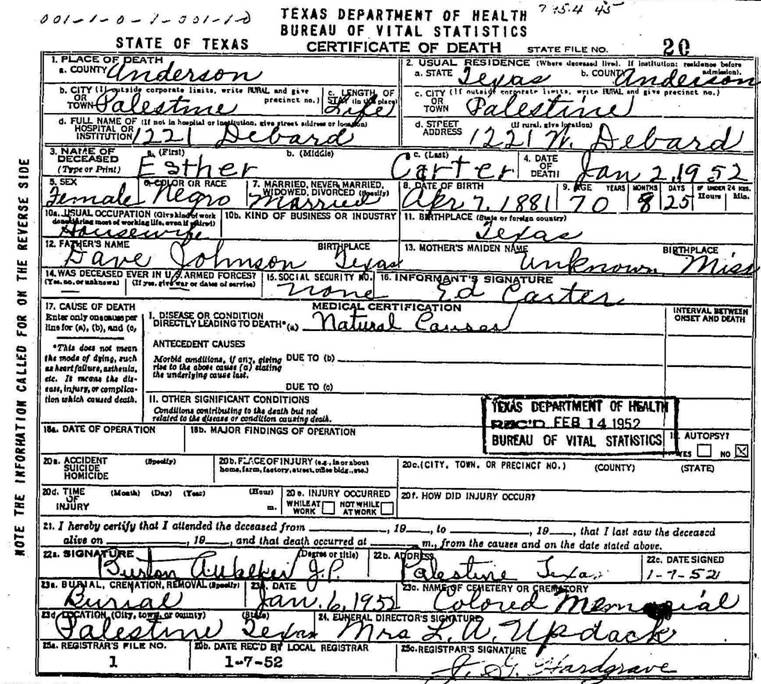 001-1-0-1-001-1-0
TEXAS DEPARTMENT OF HEALTH
BUREAU OF VITAL STATISTICS
STATE OF TEXAS CERTIFICATE OF DEATH STATE FILE NO. 20
1. PLACE OF DEATH
a. COUNTY Anderson
2. USUAL RESIDENCE (Where deceased lived. If institution: residence before admission).
a. STATE Texas b. COUNTY Anderson
b. CITY (If outside corporate limits, write RURAL and give precinct no.) OR TOWN Palestine
c. LENGTH OF STAY (in this place) Life
c. CITY (If outside corporate limits, write RURAL and give precinct no.) OR TOWN Palestine
d. FULL NAME OF (If not in hospital or institution, give street address or location) HOSPITAL OR INSTITUTION 1221 Debard
d. STREET ADDRESS (If rural, give location) 1221 W. Debard
3. NAME OF DECEASED (Type or Print) a. (First) Esther b. (Middle) c. (Last) Carter
4. DATE OF DEATH Jan 2, 1952
5. SEX Female
6. COLOR OR RACE Negro
7. MARRIED, NEVER MARRIED, WIDOWED, DIVORCED (Specify) Married
8. DATE OF BIRTH Apr 7, 1881
9. AGE YEARS 70 MONTHS 8 DAYS 25 IF UNDER 24 HRS. Hours Min.
10a. USUAL OCCUPATION (Give kind of work done during most of working life, even if retired) Housewife
10b. KIND OF BUSINESS OR INDUSTRY
11. BIRTHPLACE (State or foreign country) Texas
12. FATHER'S NAME Dave Johnson BIRTHPLACE Texas
13. MOTHER'S MAIDEN NAME Unknown BIRTHPLACE Miss
14. WAS DECEASED EVER IN U.S. ARMED FORCES?
(Yes, no, or unknown) (If yes, give war or dates of service)
15. SOCIAL SECURITY NO. none
16. INFORMANT'S SIGNATURE Ed Carter
17. CAUSE OF DEATH
Enter only one cause per line for (a), (b), and (c),
*This does not mean the mode of dying, such as heart failure, asthenia, etc. It means the disease, injury, or complication which caused death.
MEDICAL CERTIFICATION
INTERVAL BETWEEN ONSET AND DEATH
I. DISEASE OR CONDITION DIRECTLY LEADING TO DEATH* (a) Natural Causes
ANTECEDENT CAUSES
Morbid conditions, if any, giving rise to the above cause (a) stating the underlying cause last.
DUE TO (b)
DUE TO (c)
II. OTHER SIGNIFICANT CONDITIONS
Conditions contributing to the death but not related to the disease or condition causing death.
TEXAS DEPARTMENT OF HEALTH
REC'D FEB 14 1952
BUREAU OF VITAL STATISTICS
18a. DATE OF OPERATION
18b. MAJOR FINDINGS OF OPERATION
AUTOPSY?
YES NO
20a. ACCIDENT SUICIDE HOMICIDE (Specify)
20b. PLACE OF INJURY (e.g., in or about home, farm, factory, street, office bldg., etc.)
20c. (CITY, TOWN, OR PRECINCT NO.) (COUNTY) (STATE)
20d. TIME OF INJURY (Month) (Day) (Year) (Hour) m.
20e. INJURY OCCURRED WHILE AT WORK NOT WHILE AT WORK
20f. HOW DID INJURY OCCUR?
21. I hereby certify that I attended the deceased from , 19 , to , 19 , that I last saw the deceased
alive on , 19 , and that death occurred at m., from the causes and on the date stated above.
22a. SIGNATURE (Degree or title) Burton A Walker J.P.
22b. ADDRESS Palestine Texas
22c. DATE SIGNED 1-7-52
23a. BURIAL, CREMATION, REMOVAL (Specify) Burial
23b. DATE Jan. 6, 1952
23c. NAME OF CEMETERY OR CREMATORY Colored Memorial
23d. LOCATION (City, town, or county) (State) Palestine Texas
24. FUNERAL DIRECTOR'S SIGNATURE Mrs L. A. Updack
25a. REGISTRAR'S FILE NO. 1
25b. DATE REC'D BY LOCAL REGISTRAR 1-7-52
25c. REGISTRAR'S SIGNATURE Hardgrave
NOTE THE INFORMATION CALLED FOR ON THE REVERSE SIDE